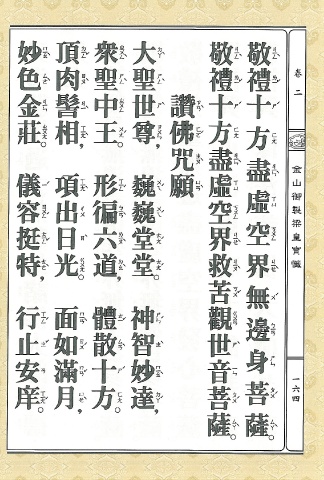 卷二
金山御製梁皇寶懺
一六四
敬禮十方盡虛空界無邊身菩薩。
敬禮十方盡虛空界救苦觀世音菩薩。
讚佛咒願
大聖世尊，巍巍堂堂。神智妙達，
眾聖中王。形徧六道，體散十方。
頂肉髻相，項出日光。面如滿月，
妙色金莊。儀容挺特，行止安庠。